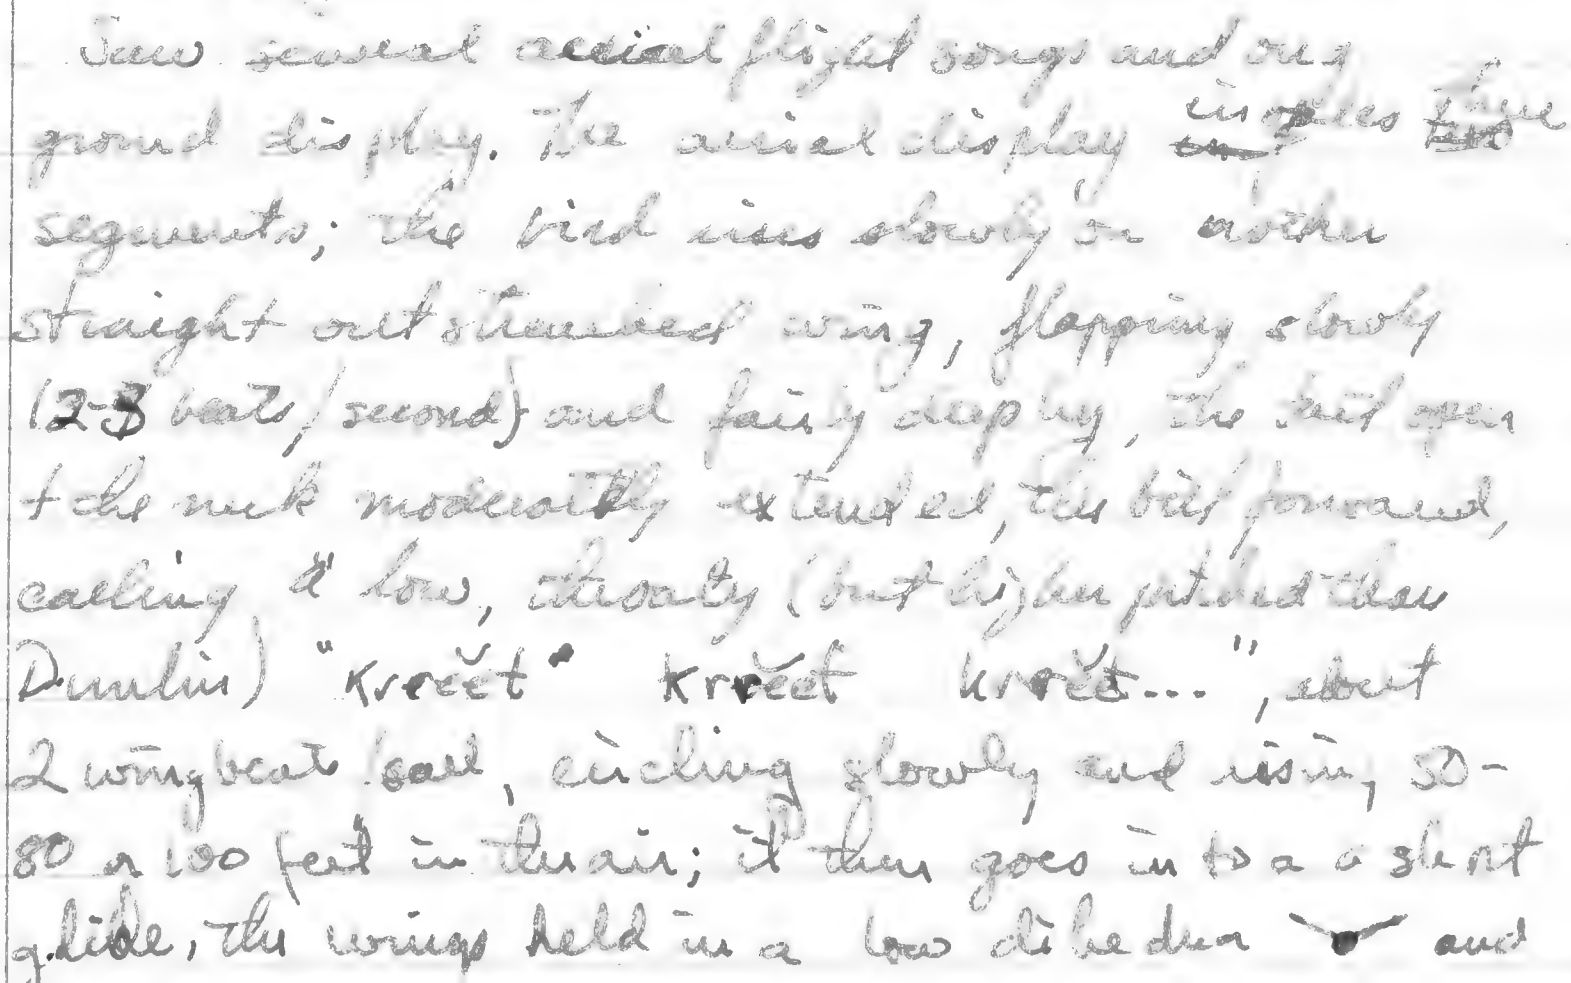 Saw several aerial flight songs and one
ground display. The aerial display includes three
segments; the bird rises slowly on rather
straight outstretched wing, flapping slowly
(2-3 beats/second) and fairly deeply, the bill open
+ the neck moderately extended, the bill forward,
calling a low, throaty (but higher pitched than
Dunlin) "krrčět krrčět krrčět...", about
2 wingbeats/call, circling slowly and rising 50-
80 or 100 feet in the air; it then goes in to a a short
glide, the wings held in a low dihedra and